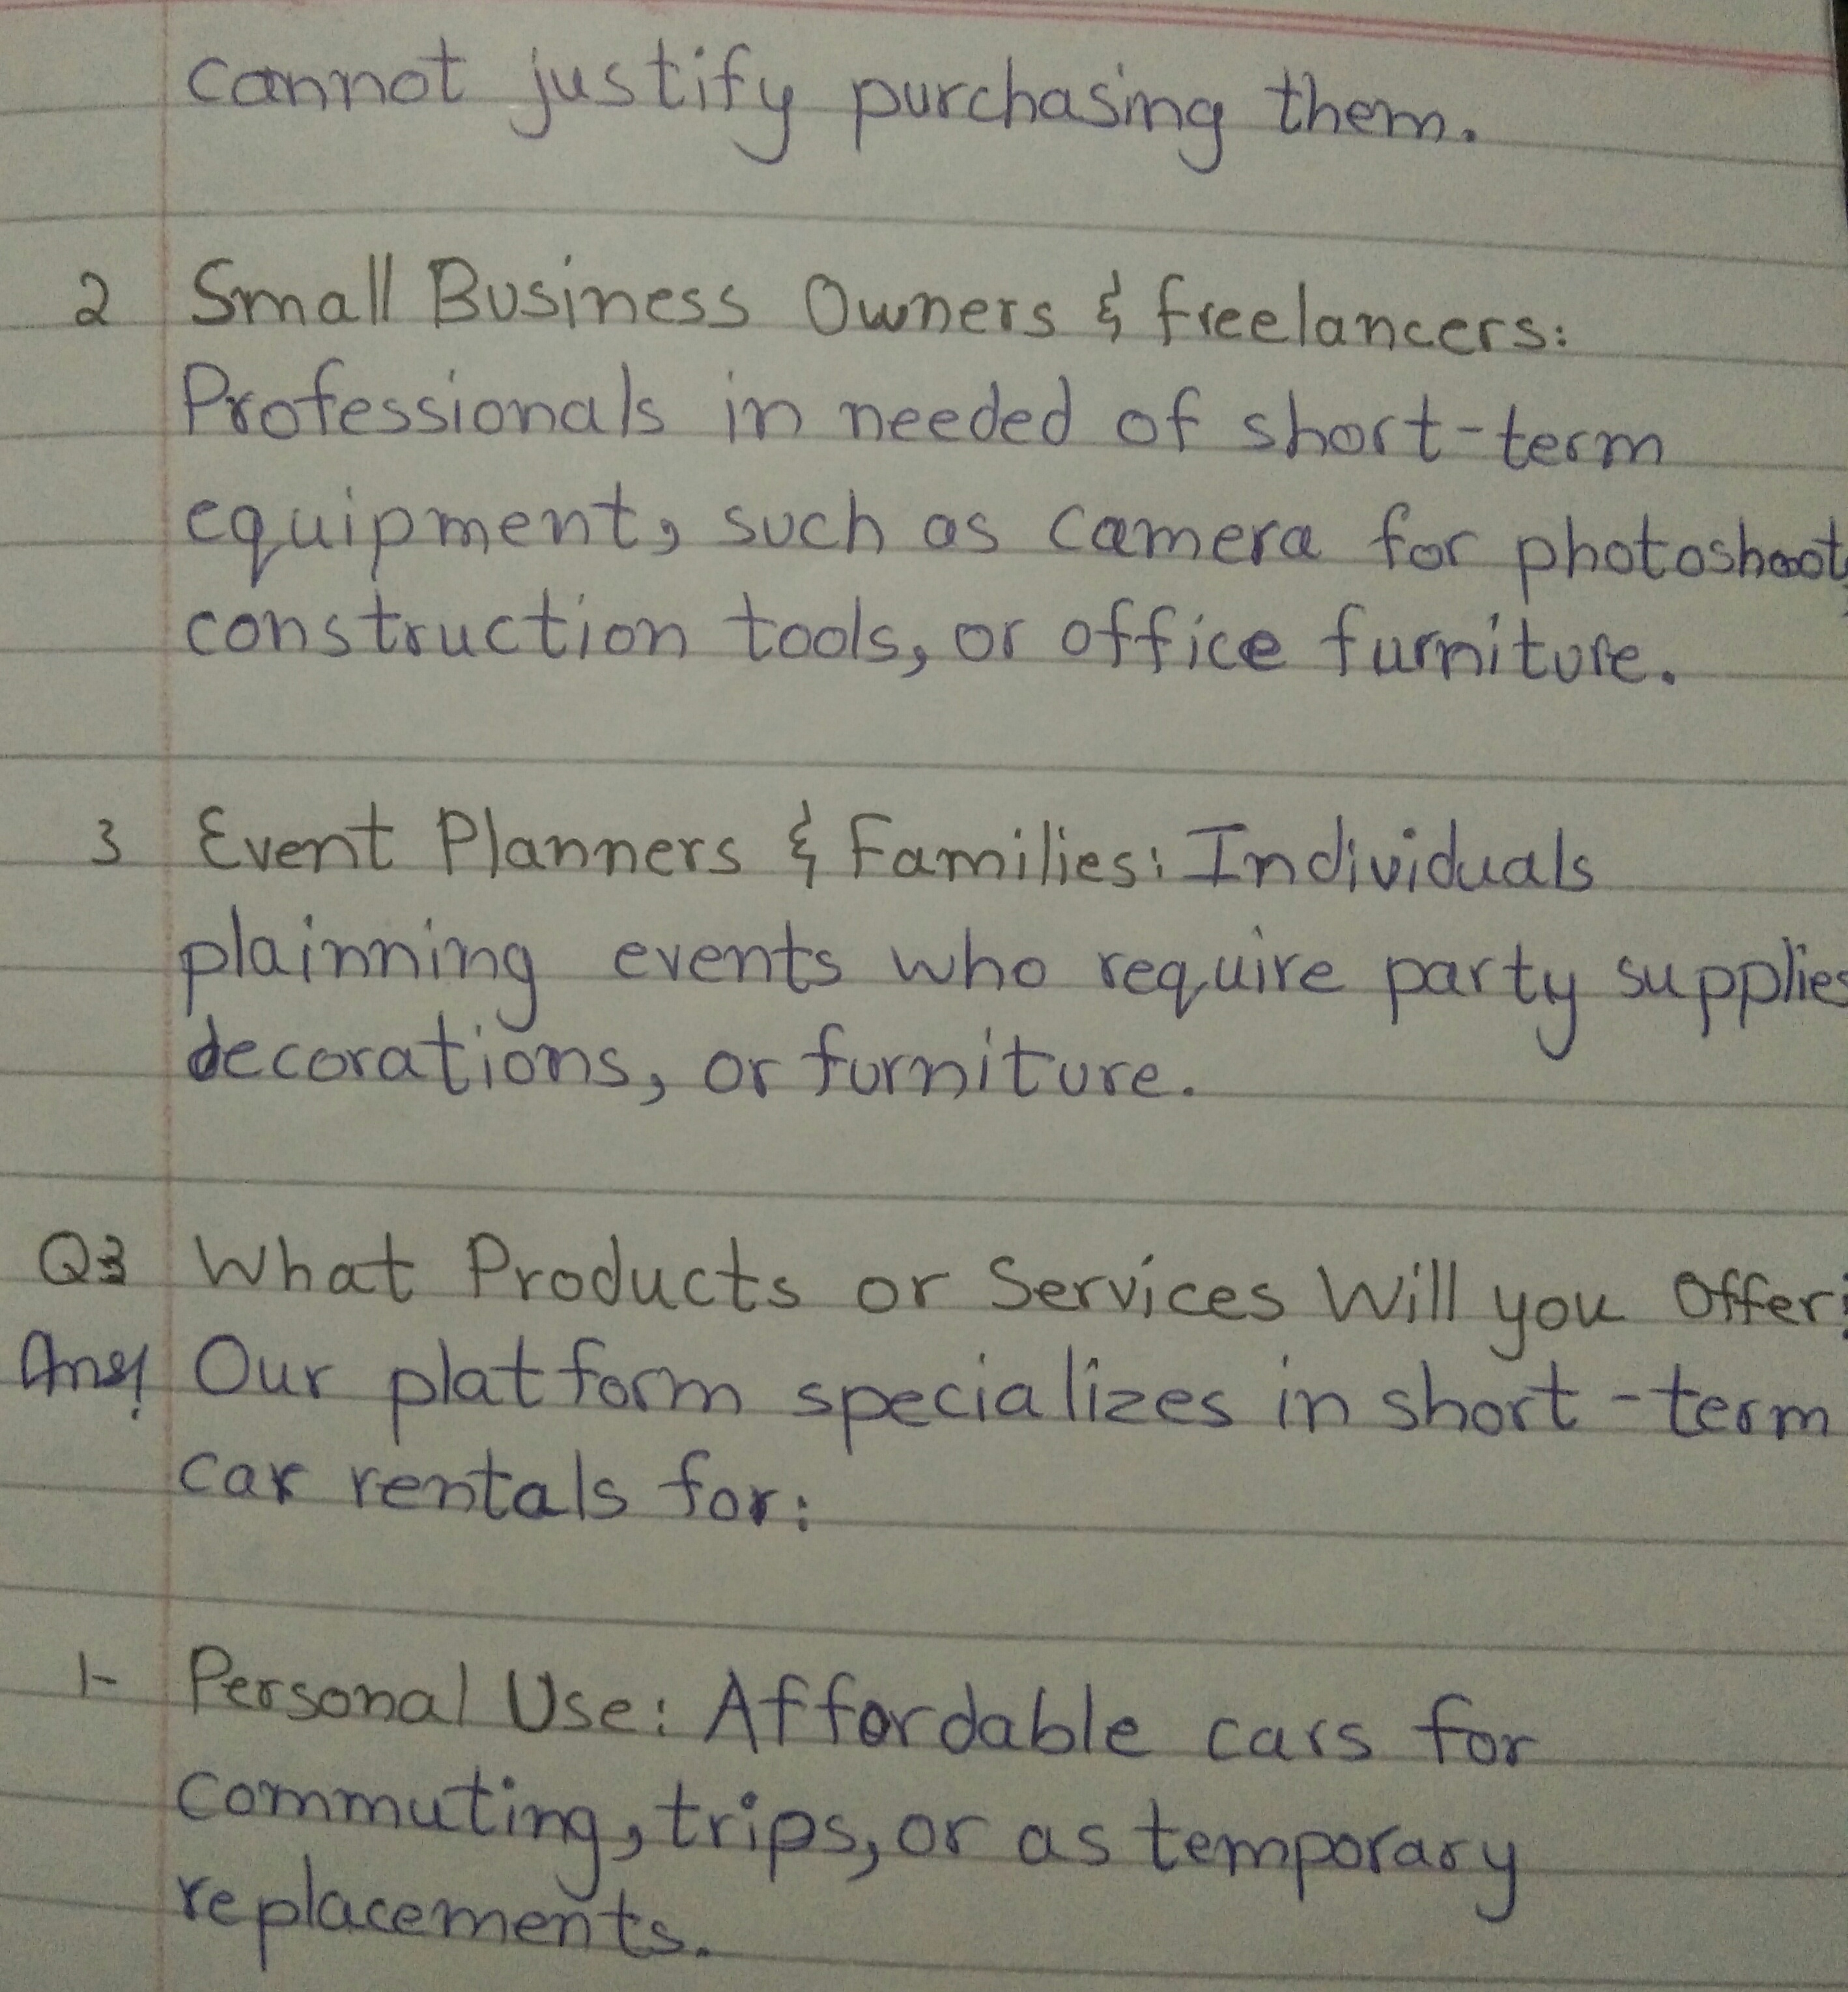 cannot justify purchasing them.
2 Small Business Owners & freelancers:
Professionals in needed of short-term
equipment, such as camera for photoshoot,
construction tools, or office furniture.
3 Event Planners & Families: Individuals
plainning events who require party supplies
decorations, or furniture.
Q3 What Products or Services Will you Offer?
Ans! Our platform specializes in short-term
car rentals for:
1- Personal Use: Affordable cars for
commuting, trips, or as temporary
replacements.